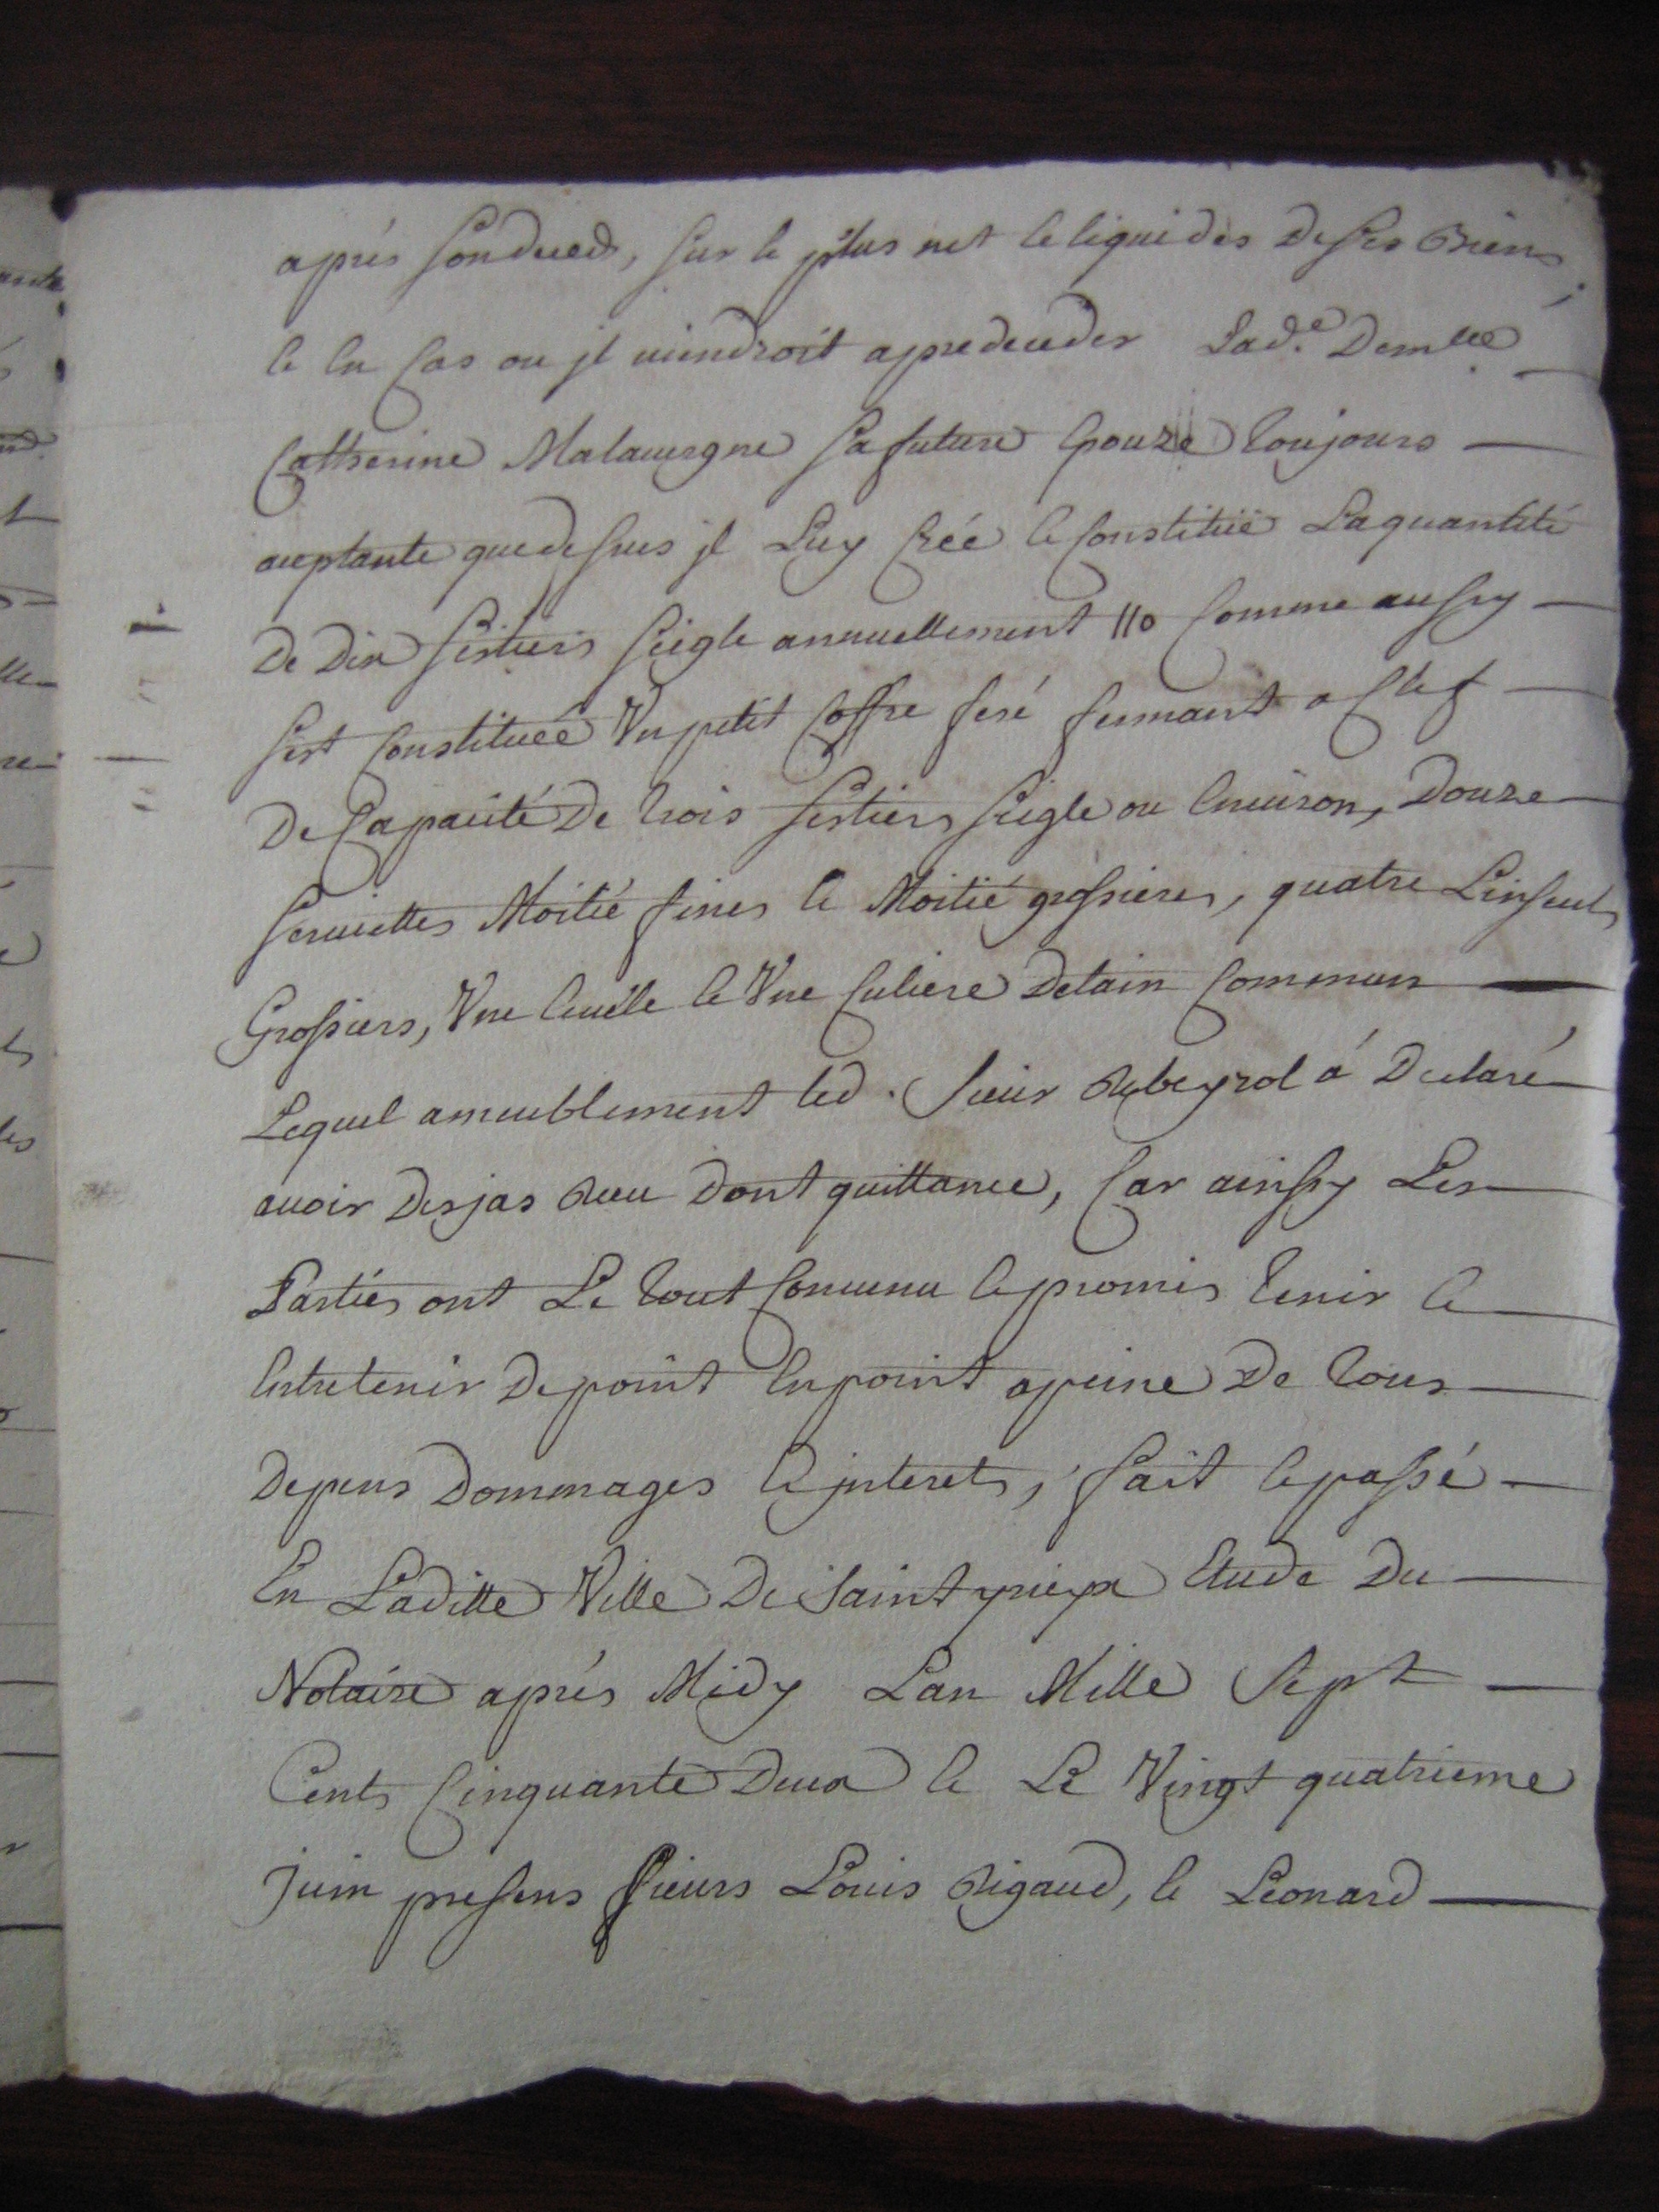 après son deces, sur le plus net et liquides de ses Biens,
et en Cas ou jl viendroit apredeceder Lad.e Demlle
Catherine Malavergne sa future Epouze toujours
aceptante que dessus jl Luy Crée et Constitüe La quantité
De Dix sestiers seigle annuellement llo Comme aussy
sest Constituée Un petit Coffre feré fermant a Clef
De Capacité De trois sestiers seigle ou Environ, Douze
serviettes Moitié fines et Moitié grossieres, quatre Linseuls
Grossiers, Une Ecuélle et Une Culiere Detain Commun
Lequel ameublement led. sieur Rebeyrol á Declaré
avoir Desjas Receu Dont quittance, Car ainssy Les
Parties ont Le tout Convenu et promis tenir et
Entretenir De point En point apeine De tous
Depens Dommages et jnterets, fait et passé
En Laditte Ville De Saint yrieyx Etude Du
Notaire aprés Midy Lan Mille Sept
Cents Cinquante Deux et Le Vingt quatrieme
Juin presens sieurs Louis Rigaud, et Leonard